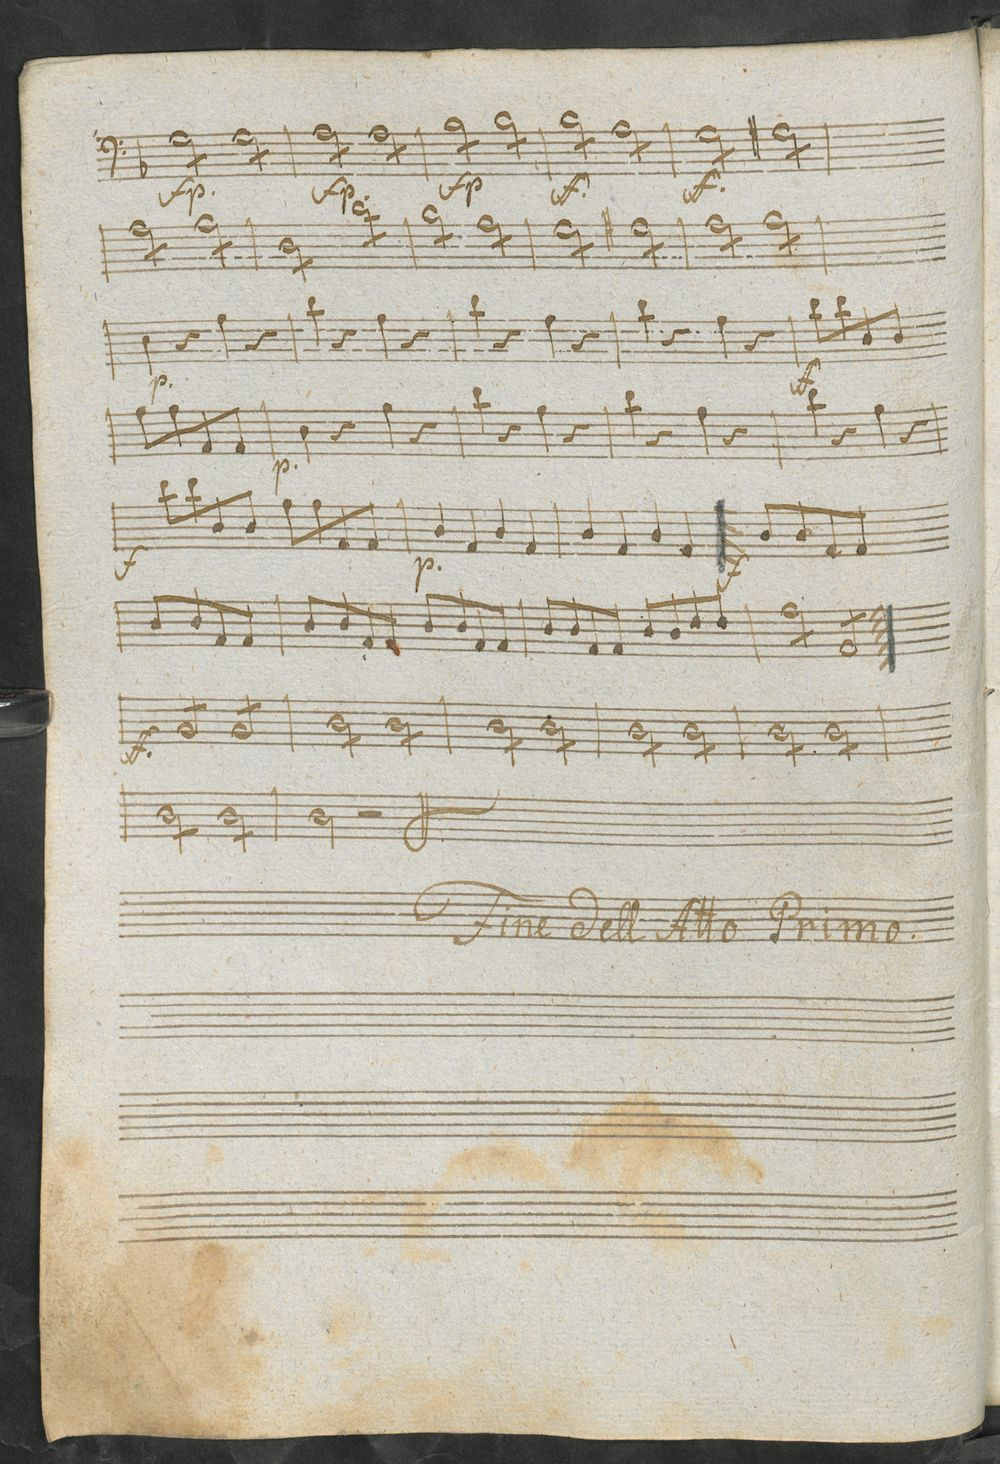 fp. fp. fp f. f.
p. f
p.
f p. f
f.
Fine dell Atto Primo.